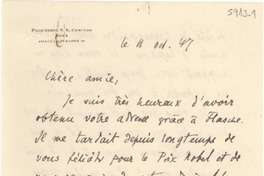 5913.1
PROFESSOR E. R. CURTIUS
BONN
le 11 oct. 47
Chère amie,
Je suis très heureux d'avoir
obtenu votre adresse grâce à
Il me tardait depuis longtemps de
vous féliciter pour le Prix Nobel et de